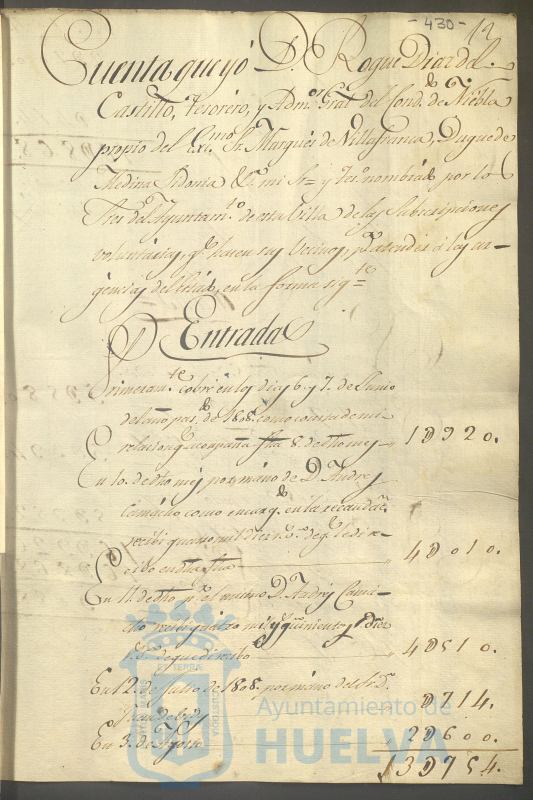 - 430 - 12
Cuenta que yó D. Roque Diaz del
Castillo, Tesorero, y Adm.r Gral del Cond.do de Niebla
propio del Exc.mo S.r Marques de Villafranca, Duque de
Medina Sidonia &.a mi S.r y Tes.o nombrado por los
S.res del Ayuntam.to de esta Villa de las Subscripciones
voluntarias, q.e hacen sus Vecinos, p.a atender á las ur-
gencias del Estado, en la forma sig.te
Entrada
Primeram.te cobré en los dias 6. y 7. de Junio
del año pas.do de 1808. como consta de mi
relacion q.e acompaña fha 8. de dho mes " 1D920.
En 10. de dho mes por mano de D. Andres
Camacho como encarg.do en la recaudac.n
recibi quatro mil diez r.s de q.e le di re-
cibo en dha fha " 4D010.
En 11. de dho p.r el mismo D. Andres Cama-
cho recibi quatro mil y quinientos diez
r.s de que di recibo " 4D510.
En 12. de Julio de 1808. por mano del S.r D.
" D714.
En 3. de Agosto " 2D600.
13D754.
Ayuntamiento de
HUELVA